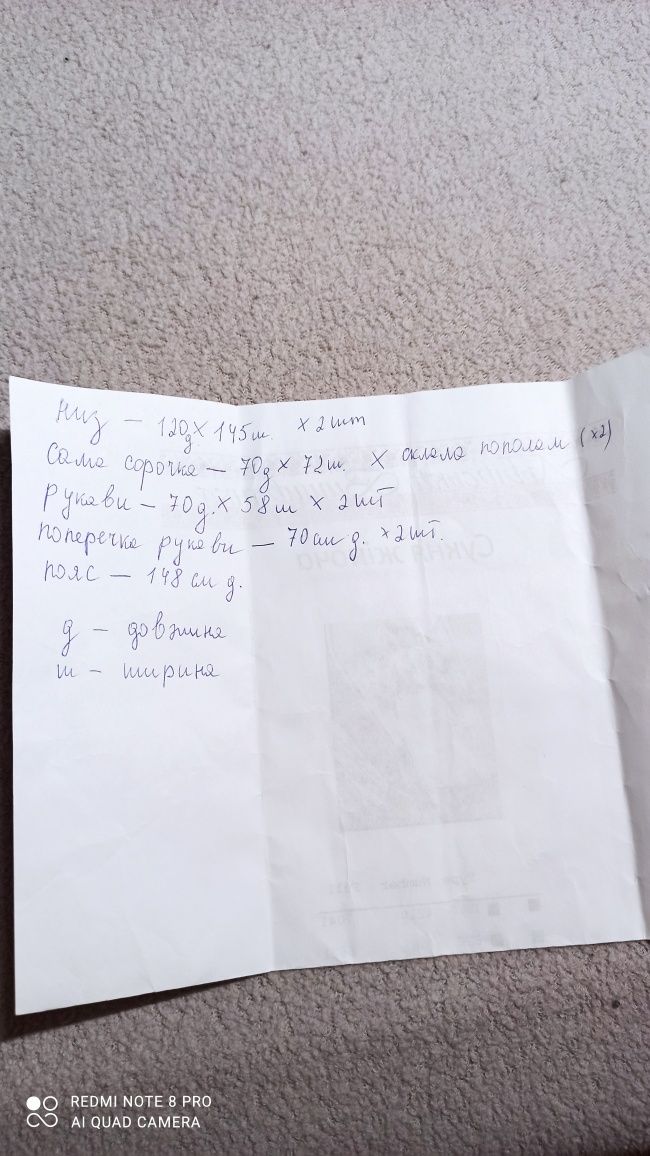 Низ – 120д х 145ш. х 2шт
Сама сорочка – 70д х 72ш. х склала пополам (х2)
Рукави – 70д. х 58ш х 2шт
поперечка рукави – 70см д. х 2шт.
пояс – 148 см д.
д – довжина
ш – ширина
Сукня жіноча
REDMI NOTE 8 PRO
AI QUAD CAMERA